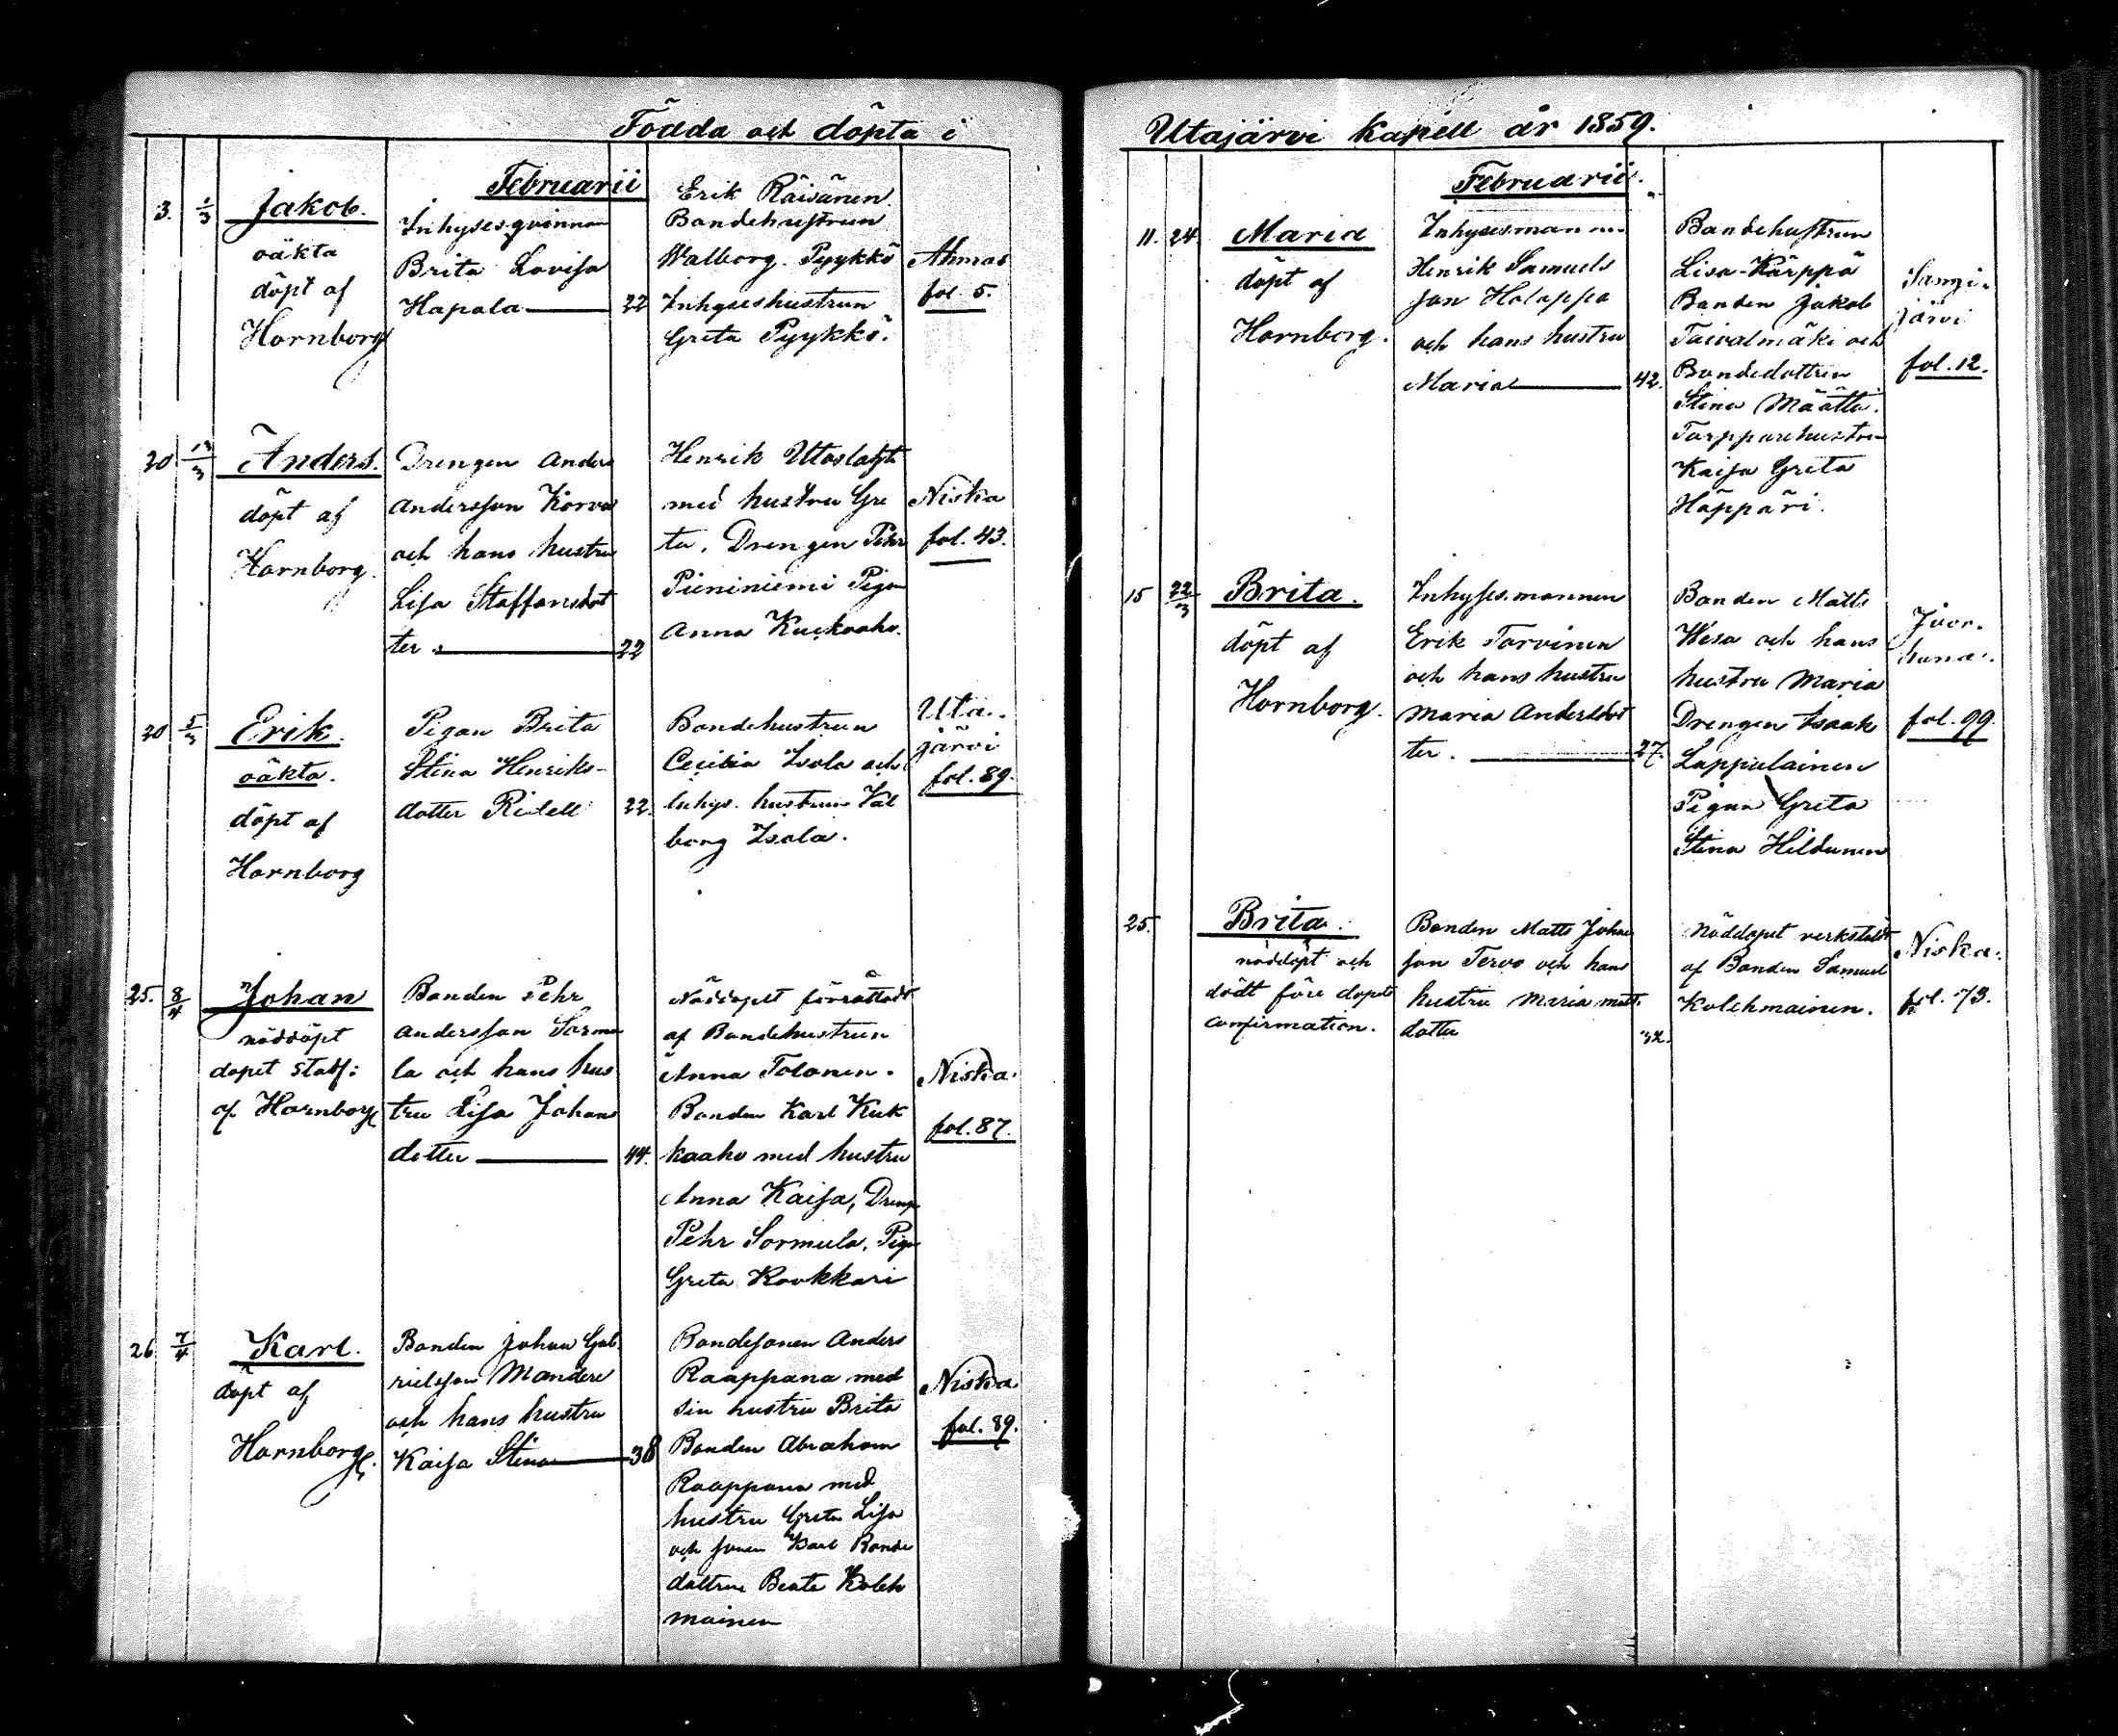 Födda och döpta i
Februarii
3. 1/3 Jakob.
oäkta
döpt af
Hornborg
Inhysesqvinnan
Brita Lovisa
Hapala 22
Erik Räisänen
Bondehustrun
Walborg Pyykkö
Inhyseshustrun
Greta Pyykkö.
Ahmas
fol. 5.
20 13/3 Anders.
döpt af
Hornborg.
Drengen Anders
Andersson Korva
och hans hustru
Lisa Staffansdot
ter. 22
Henrik
med hustru Gre
ta, Drengen Pehr
Pieniniemi Pigan
Anna Kuckaaho.
Niska
fol. 43.
20 5/3 Erik.
oäkta.
döpt af
Hornborg
Pigan Brita
Stina Henriks-
dotter Ridell 22.
Bondehustrun
Cecilia Isola och
Inhys. hustrun Val
borg Isola.
Uta-
järvi
fol. 89.
25. 8/4 Johan
nöddöpt
dopet stadf:
af Hornborg
Bonden Pehr
Andersson Sormu
la och hans hus
tru Lisa Johans
dotter 44.
Nöddopet förrättadt
af Bondehustrun
Anna Tolonen.
Bonden Karl Kuk
kaaho med hustru
Anna Kaisa, Dreng
Pehr Sormula, Pigan
Greta Koukkari
Niska.
fol. 87.
26 7/4 Karl.
döpt af
Hornborg.
Bonden Johan Gab
rielsson Mandere
och hans hustru
Kaisa Stina 38
Bondesonen Anders
Raappana med
sin hustru Brita
Bonden Abraham
Raappana med
hustru Greta Lisa
och sonen Karl Bonde
dottren Beata Koleh
mainen
Niska
fol. 89.
Utajärvi kapell år 1859.
Februarii.
11. 24 Maria
döpt af
Hornborg.
Inhysesmannen
Henrik Samuels
son Holappa
och hans hustru
Maria 42.
Bondehustrun
Lisa Kärppä
Bonden Jakob
Taivalmäki och
Bondedottren
Stina Määttä.
Torpparehustrun
Kaisa Greta
Häppäri.
Sangi-
järvi
fol. 12.
15 22/3 Brita.
döpt af
Hornborg.
Inhysesmannen
Erik Tarvinen
och hans hustru
Maria Andersdot
ter. 27.
Bonden Matts
Wesa och hans
hustru Maria
Drengen Isaak
Lappalainen
Pigan Greta
Stina Hildunen
Juor-
kuna.
fol. 99.
25. Brita.
nöddöpt och
dödt före dopets
confirmation.
Bonden Matts Johans
son Tervo och hans
hustru Maria Matts
dotter 32.
Nöddopet verkstäldt
af Bonden Samuel
Kolehmainen.
Niska.
fol. 73.